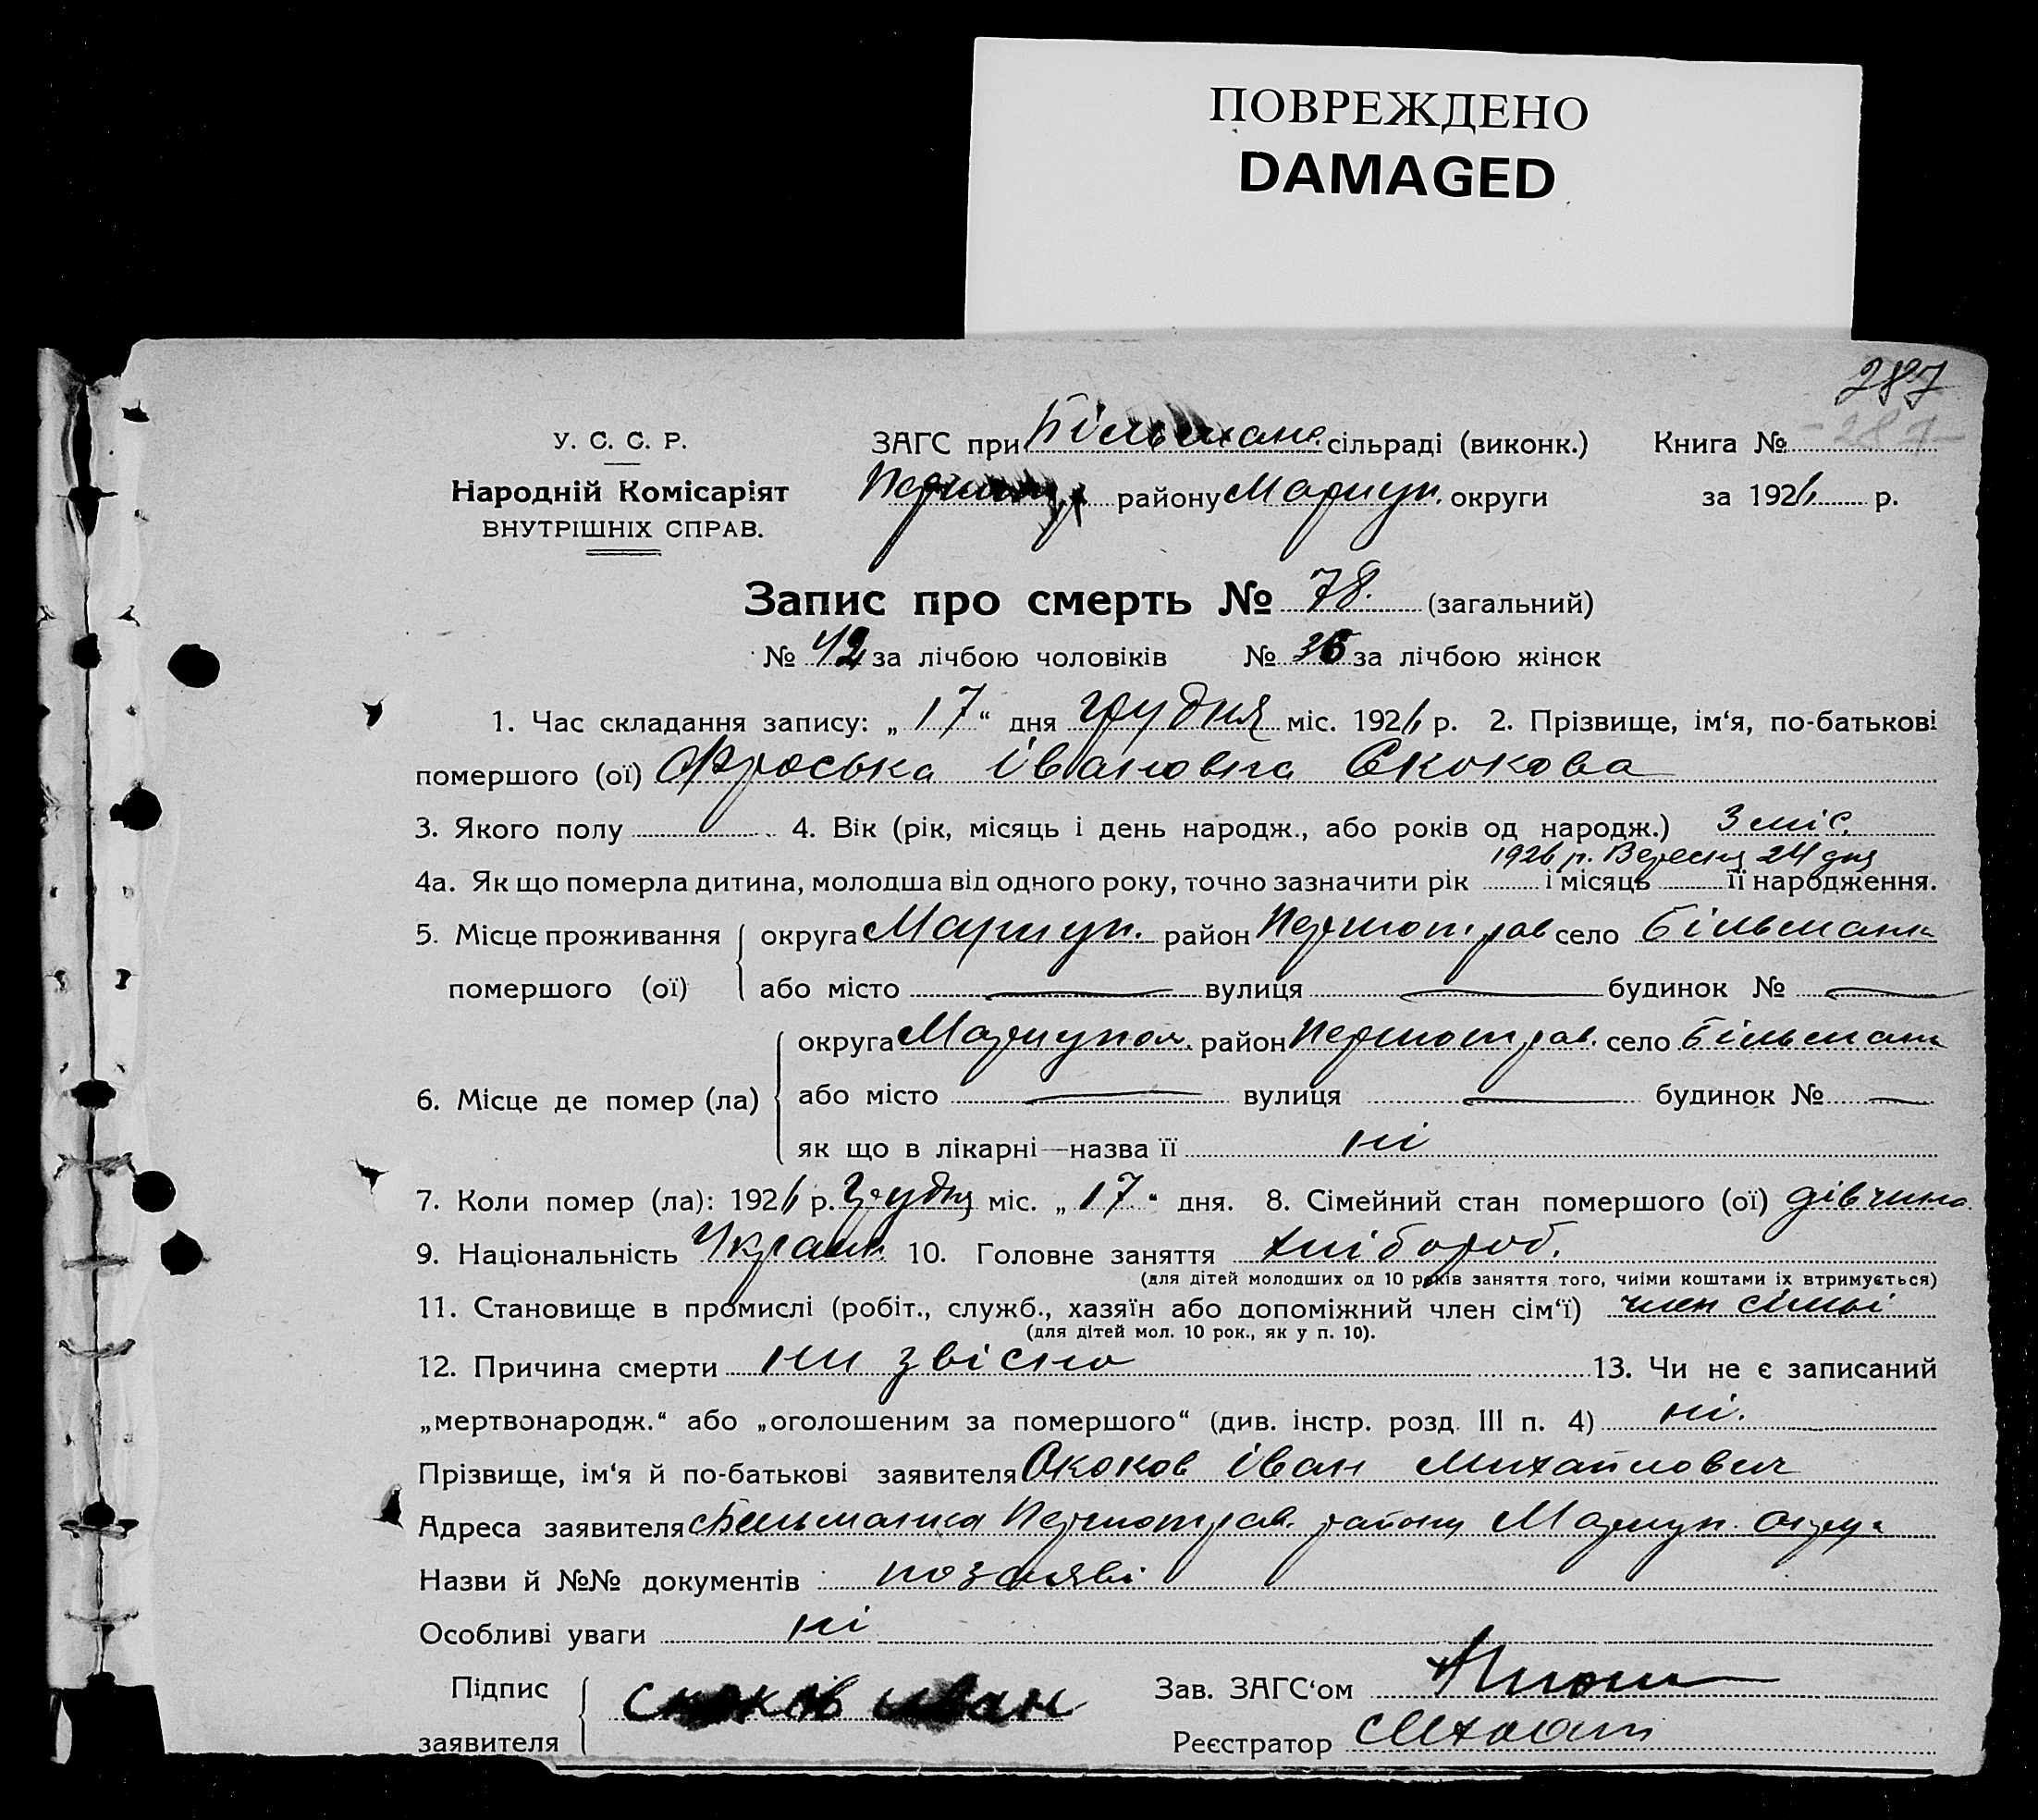 ПОВРЕЖДЕНО
DAMAGED
287
У. С. С. Р.
ЗАГС при Більманс. сільраді (виконк.)
Книга № -287-
Народній Комісаріят
району Мариуп. округи
за 1926 р.
ВНУТРІШНІХ СПРАВ.
Запис про смерть № 78. (загальний)
№ 42 за лічбою чоловіків № 36 за лічбою жінок
1. Час складання запису: „17“ дня грудня міс. 1926 р. 2. Прізвище, ім‘я, по-батькові
помершого (ої) Фроська Івановна Скокова
3. Якого полу 4. Вік (рік, місяць і день народж., або років од народж.) 3 міс.
1926 р. Вересня 24 дня
4а. Як що померла дитина, молодша від одного року, точно зазначити рік і місяць її народження.
5. Місце проживання округа Мариуп. район Першотрав село Більманка
помершого (ої) або місто — вулиця — будинок № —
округа Мариупол. район Першотрав. село Більманк
6. Місце де помер (ла) або місто — вулиця — будинок № —
як що в лікарні—назва її ні
7. Коли помер (ла): 1926 р. Грудня міс. „17“ дня. 8. Сімейний стан помершого (ої) дівчина
9. Національність Україн. 10. Головне заняття хлібороб.
(для дітей молодших од 10 років заняття того, чиїми коштами їх втримується)
11. Становище в промислі (робіт., служб., хазяїн або допоміжний член сім‘ї) член сімьі
(для дітей мол. 10 рок., як у п. 10).
12. Причина смерти ни звісно 13. Чи не є записаний
„мертвонародж.“ або „оголошеним за помершого“ (див. інстр. розд. III п. 4) ні.
Прізвище, ім‘я й по-батькові заявителя Скоков Іван Михайлович
Адреса заявителя Більманка Першотрав. району Мариуп. округ
Назви й №№ документів по заяві
Особливі уваги ні
Підпис
заявителя скоков иван
Зав. ЗАГС‘ом
Реєстратор